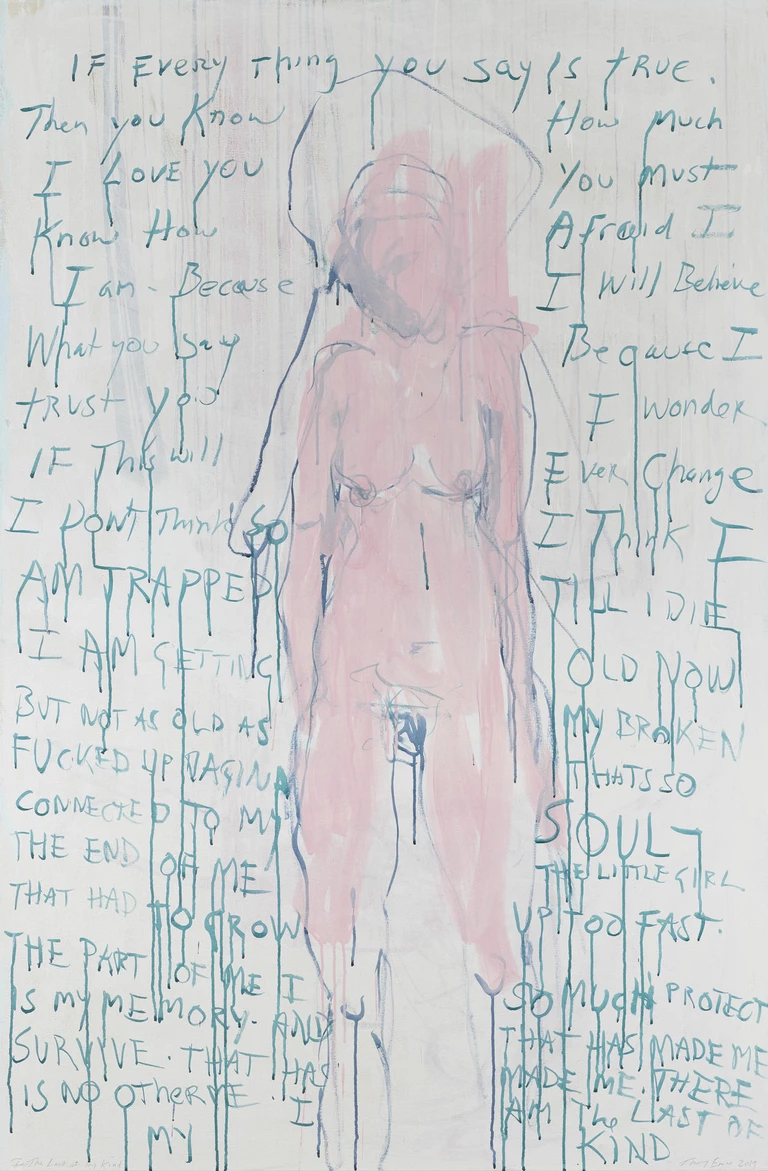 IF Every Thing you say is true.
Then you Know How much
I LOVE YOU You must
Know How Afraid I
I am - Because I will Believe
What you say Because I
trust you I wonder
IF This will Ever Change
I Dont Think so I Think I
AM TRAPPED TILL I DIE
I AM GETTING OLD NOW
BUT NOT AS OLD AS MY BROKEN
FUCKED UP VAGINA THATS SO
CONNECTED TO MY SOUL -
THE END OF ME THE LITTLE GIRL
THAT HAD TO GROW UP TOO FAST.
THE PART OF ME I SO MUCH PROTECT
IS MY MEMORY. AND THAT HAS MADE ME
SURVIVE. THAT HAS MADE ME. THERE
IS NO OTher ME. I AM The LAST OF
MY KIND